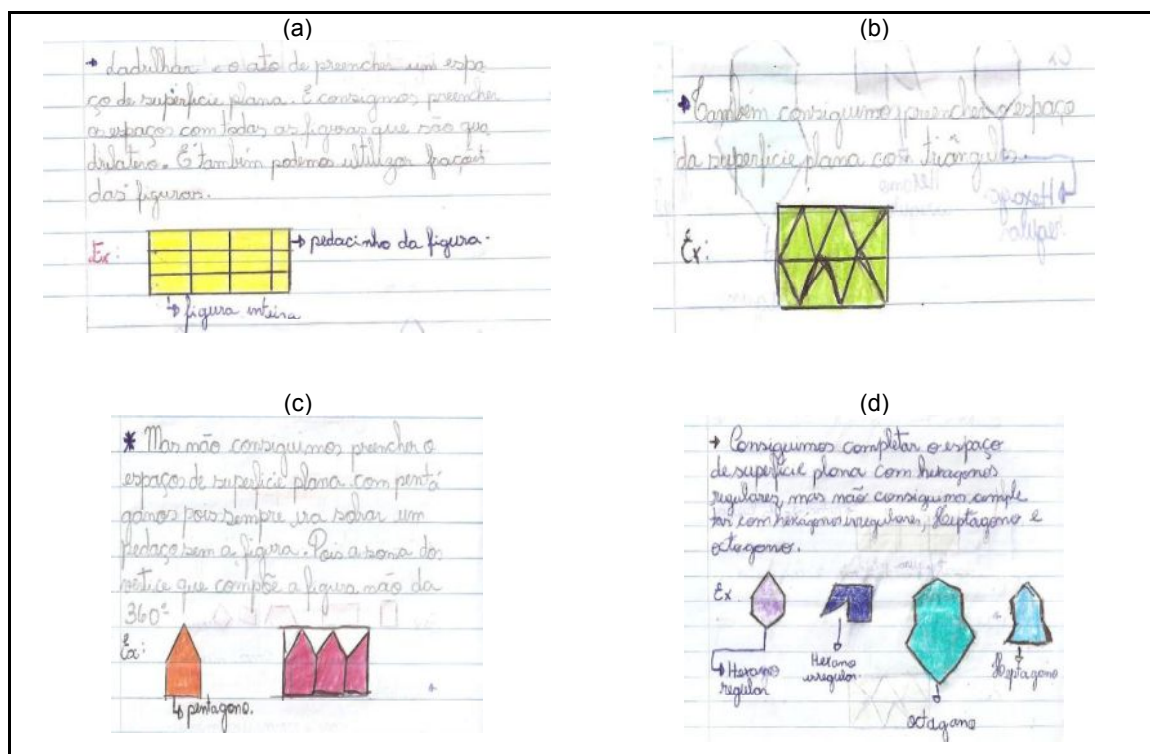 (a)
• Ladrilhar é o ato de preencher um espa
ço de superficie plana. E consigmos preencher
os espaços com todas as figuras que são qua
drilatero. E também podemos utilizar frações
das figuras.
Ex:
→ pedacinho da figura.
↳ figura inteira
(b)
Também consiguimos preencher o espaço
da superficie plana com triângulos.
Ex:
(c)
* Mas não consiguimos preencher o
espaços de superficie plana com pentá
ganos pois sempre ira sobrar um
pedaço sem a figura. Pois a soma dos
vertice que compõe a figura não da
360º
Ex:
↳ pentagono.
(d)
→ Consiguimos completar o espaço
de superficie plana com hexagonos
regulares, mas não consiguimos comple
tar com hexágonos irregulares, Heptagono e
octagono.
Ex.
→ Hexano
regular
Hexano
irregular
octagano
Heptagono